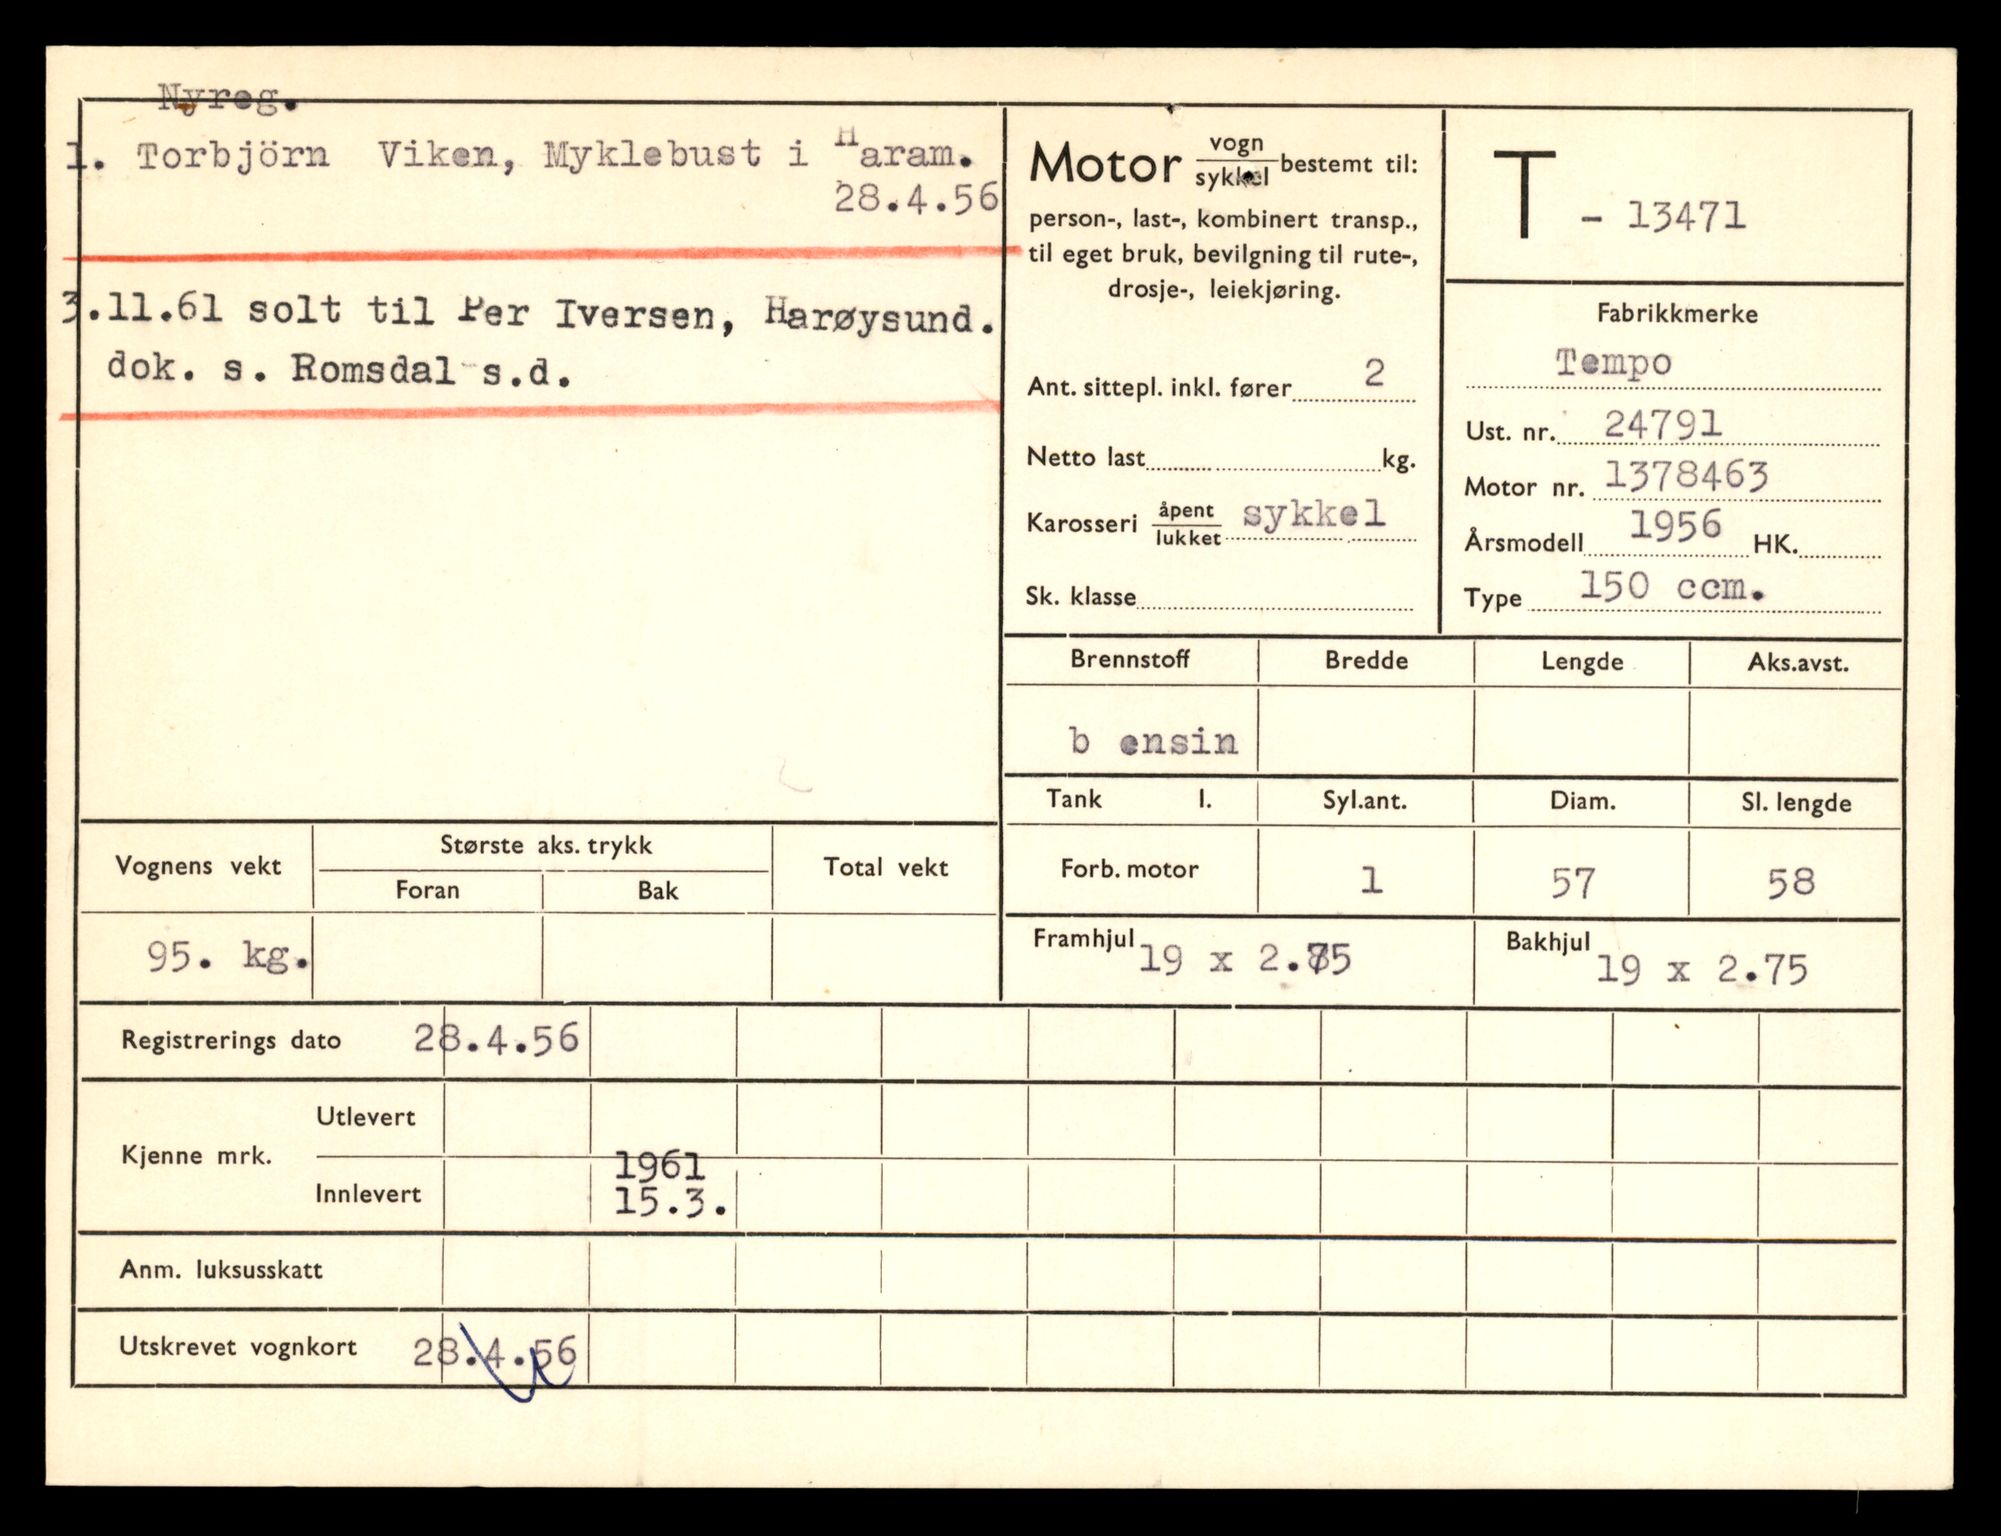 Nyreg.
1. Torbjörn Viken, Myklebust i Haram.
28.4.56
3.11.61 solt til Per Iversen, Harøysund.
dok. s. Romsdal s.d.
Motor vogn/sykkel bestemt til:
person-, last-, kombinert transp.,
til eget bruk, bevilgning til rute-,
drosje-, leiekjøring.
Ant. sittepl. inkl. fører 2
Netto last kg.
Karosseri åpent/lukket sykkel
Sk. klasse
T - 13471
Fabrikkmerke
Tempo
Ust. nr. 24791
Motor nr. 1378463
Årsmodell 1956 HK.
Type 150 ccm.
Brennstoff Bredde Lengde Aks.avst.
b ensin
Tank l. Syl.ant. Diam. Sl. lengde
Forb. motor 1 57 58
Framhjul 19 x 2.75 Bakhjul 19 x 2.75
Vognens vekt Største aks. trykk Total vekt
Foran Bak
95. kg.
Registrerings dato 28.4.56
Kjenne mrk. Utlevert
Innlevert 1961
15.3.
Anm. luksusskatt
Utskrevet vognkort 28.4.56